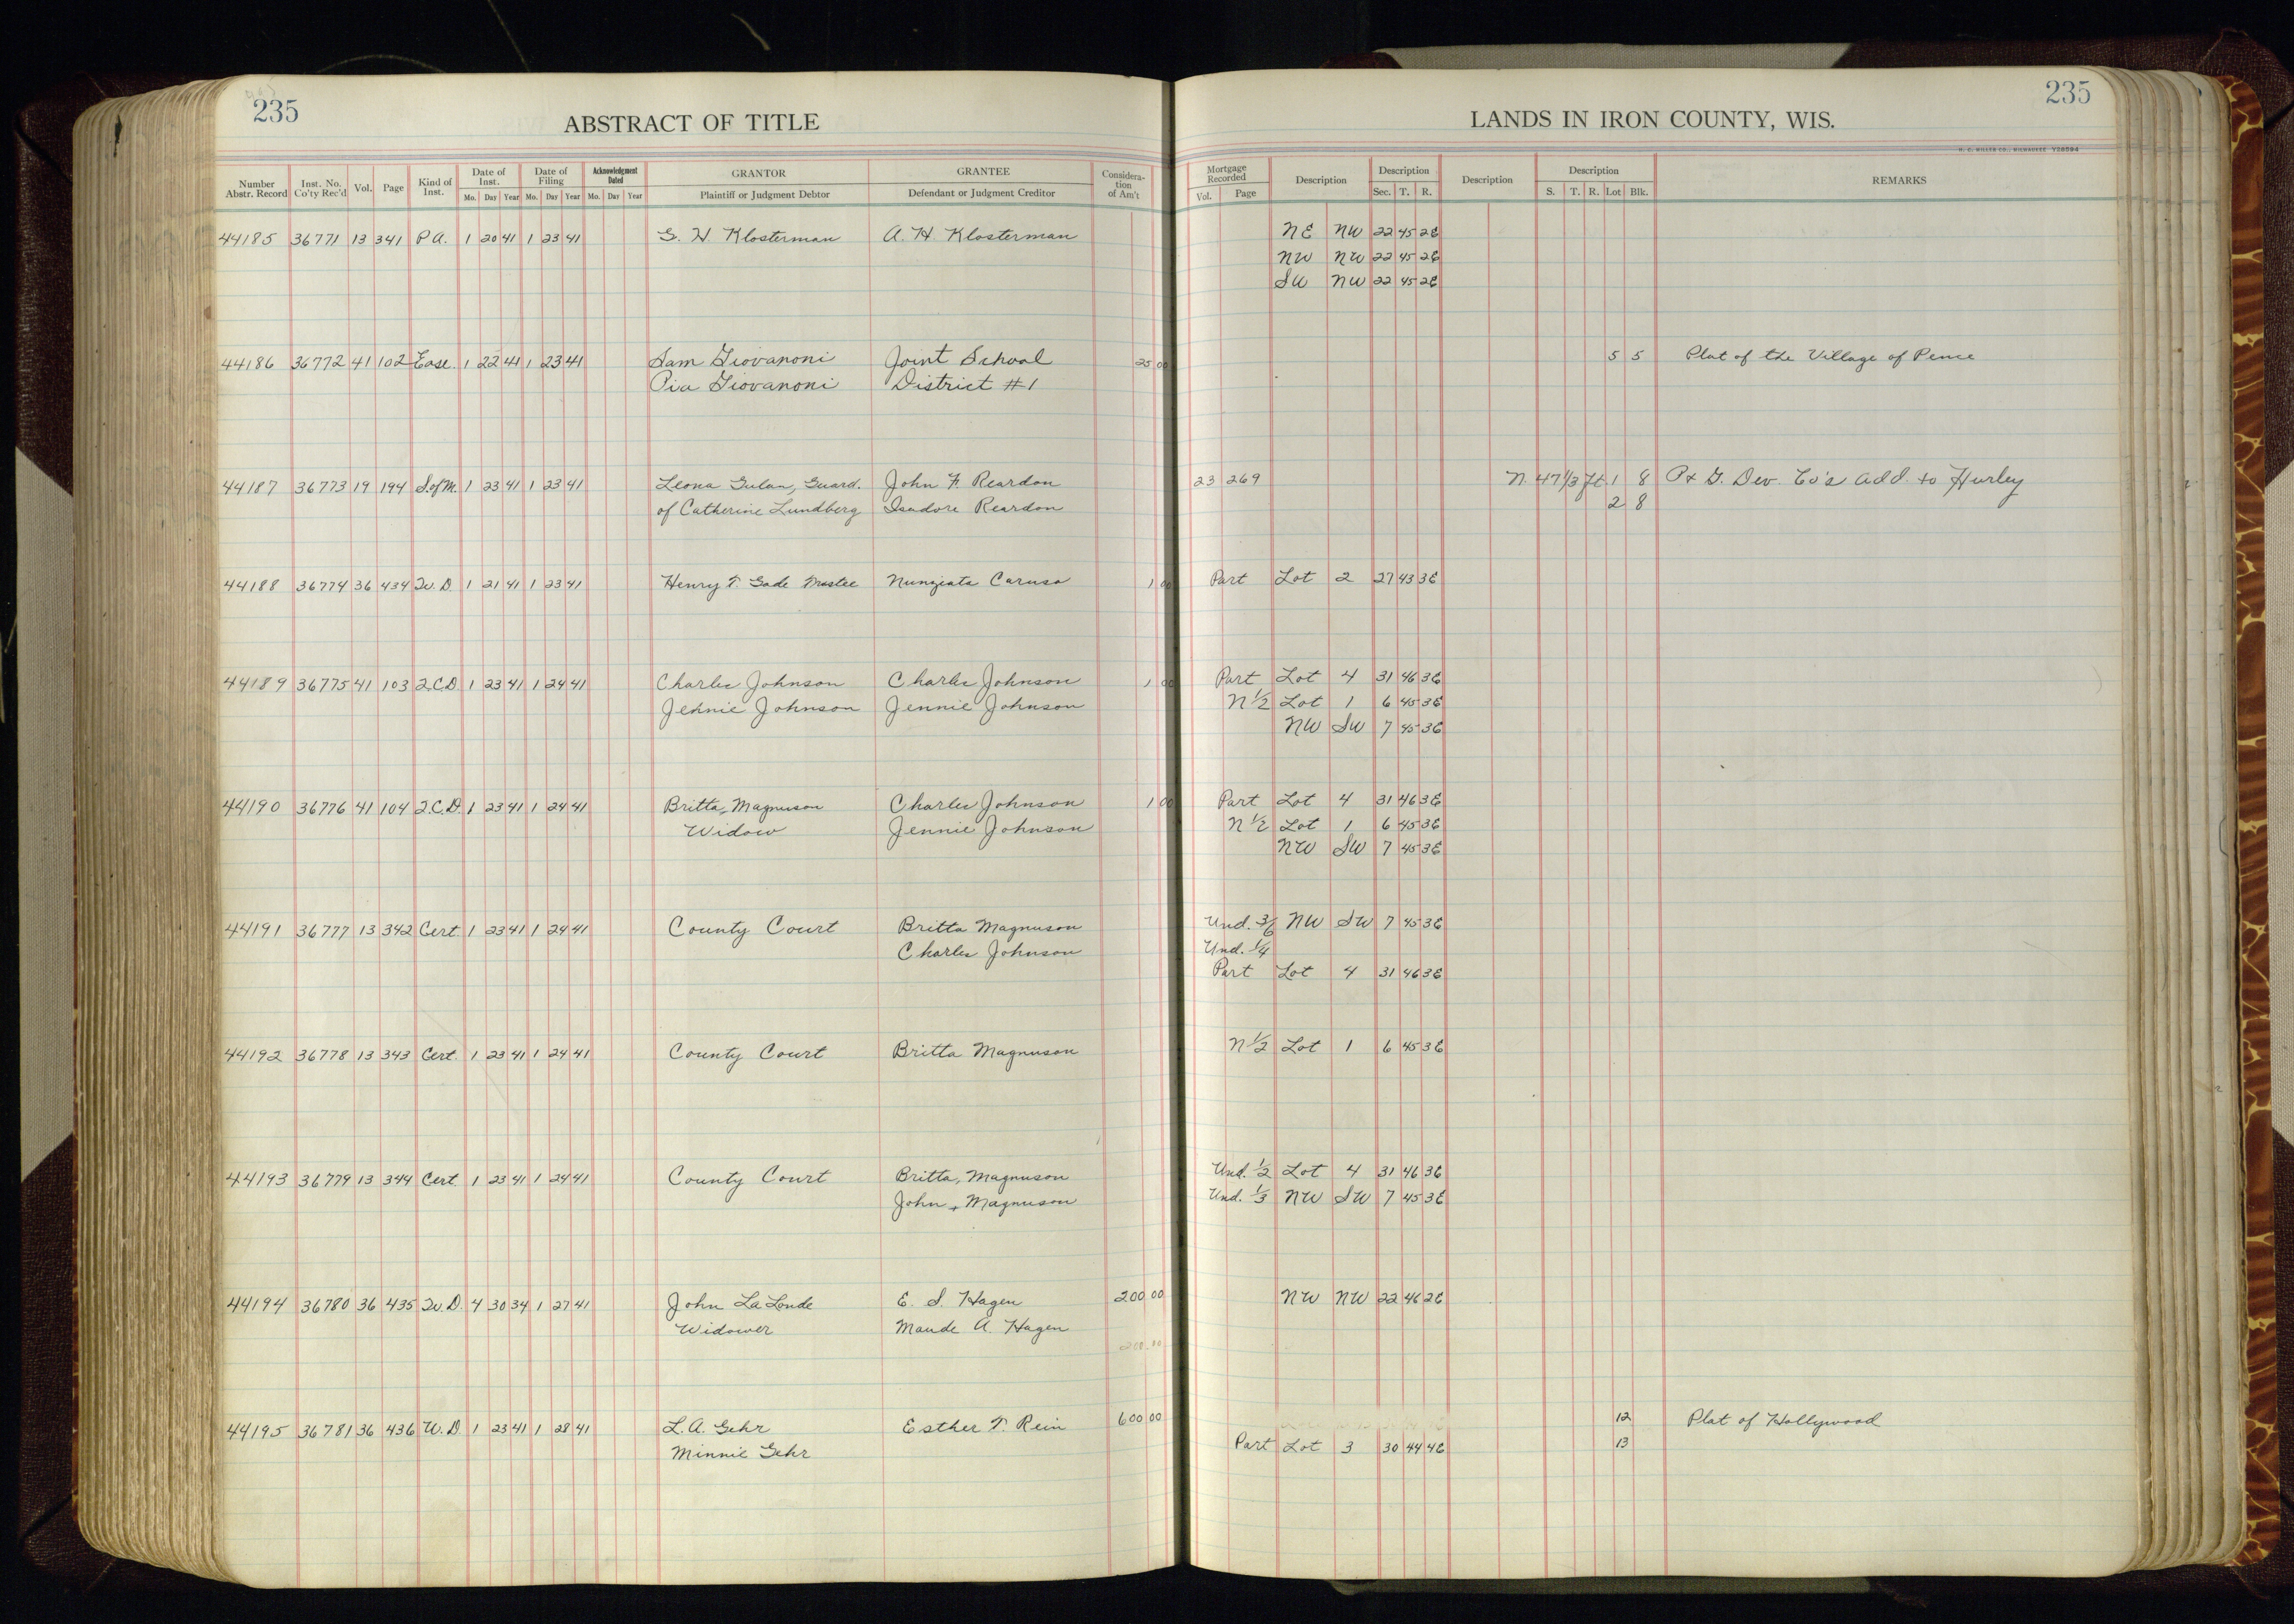 235
ABSTRACT OF TITLE
LANDS IN IRON COUNTY, WIS.
235
H. C. MILLER CO., MILWAUKEE Y58594
Number Abstr. Record | Inst. No. Co'ty Rec'd | Vol. | Page | Kind of Inst. | Date of Inst. Mo. Day Year | Date of Filing Mo. Day Year | Acknowledgment Dated Mo. Day Year | GRANTOR Plaintiff or Judgment Debtor | GRANTEE Defendant or Judgment Creditor | Considera-tion of Am't | Mortgage Recorded Vol. Page | Description | Description Sec. T. R. | Description | Description S. T. R. Lot Blk. | REMARKS
44185 36771 13 341 P.A. 1 20 41 1 23 41 G. H. Klosterman A. H. Klosterman NE NW 22 45 2E
NW NW 22 45 2E
SW NW 22 45 2E
44186 36772 41 102 Ease. 1 22 41 1 23 41 Sam Giovanoni Joint School 25 00 5 5 Plat of the Village of Pence
Pia Giovanoni District #1
44187 36773 19 194 S.ofM. 1 23 41 1 23 41 Leona Gulan, Guard. John F. Reardon 23 269 N. 47 1/3 ft. 1 8 P & G. Dev. Co's Add. to Hurley
of Catherine Lundberg Isadore Reardon 2 8
44188 36774 36 434 W. D. 1 21 41 1 23 41 Henry T. Gade Nunziata Caruso 1 00 Part Lot 2 27 43 3E
44189 36775 41 103 2.C.D. 1 23 41 1 24 41 Charles Johnson Charles Johnson 1 00 Part Lot 4 31 46 3E
Jennie Johnson Jennie Johnson N 1/2 Lot 1 6 45 3E
NW SW 7 45 3E
44190 36776 41 104 2.C.D. 1 23 41 1 24 41 Britta Magnuson Charles Johnson 1 00 Part Lot 4 31 46 3E
Widow Jennie Johnson N 1/2 Lot 1 6 45 3E
NW SW 7 45 3E
44191 36777 13 342 Cert. 1 23 41 1 24 41 County Court Britta Magnuson Und. 3/6 NW SW 7 45 3E
Charles Johnson Und. 1/4
Part Lot 4 31 46 3E
44192 36778 13 343 Cert. 1 23 41 1 24 41 County Court Britta Magnuson N 1/2 Lot 1 6 45 3E
44193 36779 13 344 Cert. 1 23 41 1 24 41 County Court Britta Magnuson Und. 1/2 Lot 4 31 46 3E
John Magnuson Und. 1/3 NW SW 7 45 3E
44194 36780 36 435 W. D. 4 30 34 1 27 41 John LaLonde E. S. Hagen 200 00 NW NW 22 46 2E
Widower Maude A. Hagen
200.00
44195 36781 36 436 W. D. 1 23 41 1 28 41 L. A. Gehr Esther T. Rein 600 00 12 Plat of Hollywood
Minnie Gehr Part Lot 3 30 44 4E 13